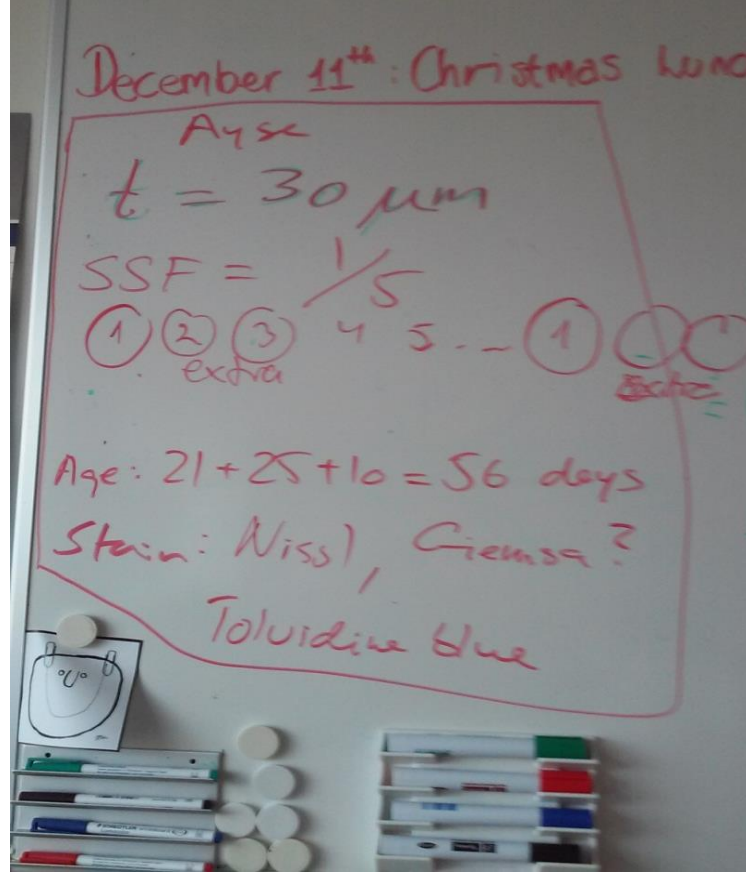 December 11th: Christmas Lunc
Ayse
t = 30 µm
SSF = 1/5
1 2 3 4 5 . . . 1
extra
Age: 21+25+10 = 56 days
Stain: Nissl, Giemsa?
Toluidine blue